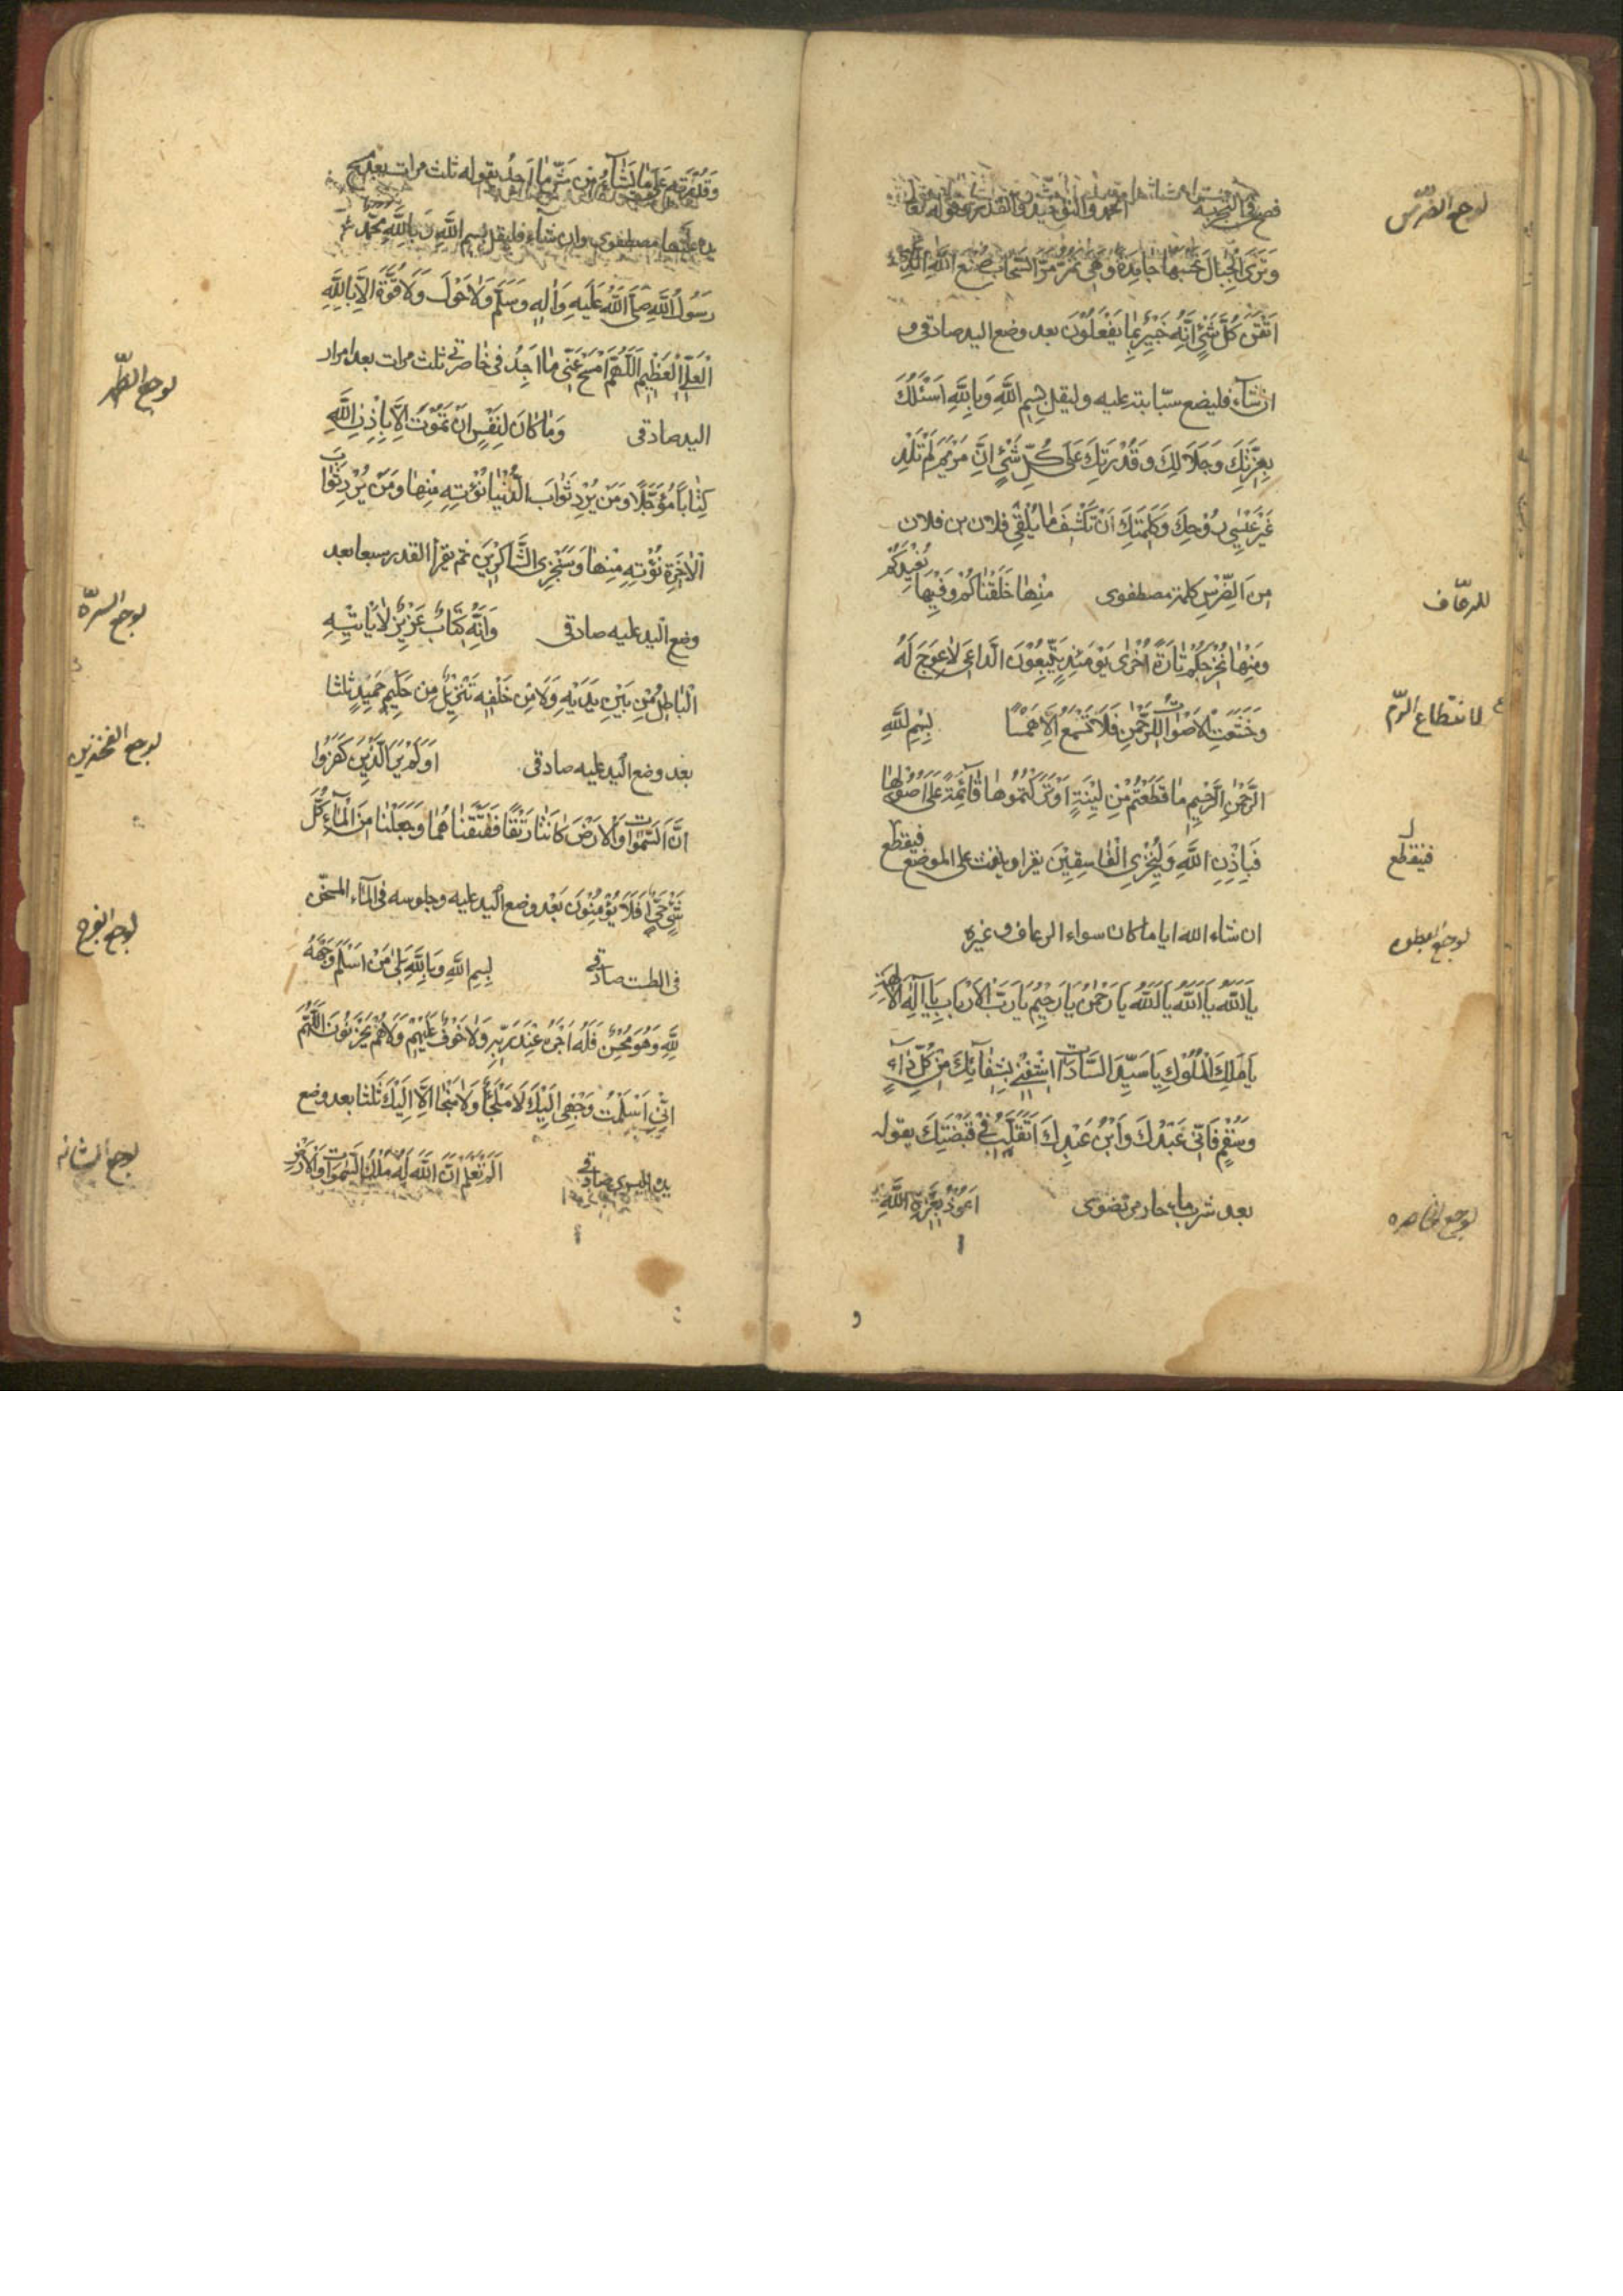 لوجع الضرس
وَتَرَى الْجِبَالَ تَحْسَبُهَا جَامِدَةً وَهِيَ تَمُرُّ مَرَّ السَّحَابِ صُنْعَ اللَّهِ الَّذِي
اَتْقَنَ كُلَّ شَيْءٍ اِنَّهُ خَبِيرٌ بِمَا يَفْعَلُونَ بعد وضع اليد صادقى و
ان شاء فليضع سبّابته عليه وليقل بِسْمِ اللَّهِ وَبِاللَّهِ اَسْئَلُكَ
بِعِزَّتِكَ وَجَلَالِكَ وَقُدْرَتِكَ عَلَى كُلِّ شَيْءٍ اِنَّ مَرْيَمَ لَمْ تَلِدْ
غَيْرَ عِيسَى رُوحِكَ وَكَلِمَتِكَ اَنْ تَكْشِفَ مَا يَلْقَى فلان بن فلان
للرعاف
مِنَ الضِّرْسِ كلمة مصطفوى مِنْهَا خَلَقْنَاكُمْ وَفِيهَا نُعِيدُكُمْ
وَمِنْهَا نُخْرِجُكُمْ تَارَةً اُخْرَى يَوْمَئِذٍ يَتَّبِعُونَ الدَّاعِىَ لَا عِوَجَ لَهُ
لانقطاع الدم
وَخَشَعَتِ الْاَصْوَاتُ لِلرَّحْمٰنِ فَلَا تَسْمَعُ اِلَّا هَمْسًا بِسْمِ اللَّهِ
الرَّحْمٰنِ الرَّحِيمِ مَا قَطَعْتُمْ مِنْ لِينَةٍ اَوْ تَرَكْتُمُوهَا قَائِمَةً عَلَى اُصُولِهَا
فينقطع
فَبِاِذْنِ اللَّهِ وَلِيُخْزِيَ الْفَاسِقِينَ يقرا وينفث على الموضع فيقطع
ان شاء الله ايا ما كان سواء الرعاف وغيره
لوجع البطن
يَا اَللَّهُ يَا اَللَّهُ يَا اَللَّهُ يَا رَحْمٰنُ يَا رَحِيمُ يَا رَبَّ الْاَرْبَابِ يَا اِلٰهَ الْاٰلِهَةِ
يَا مَلِكَ الْمُلُوكِ يَا سَيِّدَ السَّادَاتِ اشْفِنِي بِشِفَائِكَ مِنْ كُلِّ دَاءٍ
وَسُقْمٍ فَاِنِّي عَبْدُكَ وَابْنُ عَبْدِكَ اَتَقَلَّبُ فِي قَبْضَتِكَ يقوله
لوجع الخاصره
بعد شرب ماء حار مرتضوى اَعُوذُ بِعِزَّةِ اللَّهِ
وَقُدْرَتِهِ عَلَى مَا يَشَاءُ مِنْ شَرِّ مَا اَجِدُ يقوله ثلث مرات بعد مسح
يده عليها مصطفوى وان شاء فليقل بِسْمِ اللَّهِ وَبِاللَّهِ مُحَمَّدٌ
رَسُولُ اللَّهِ صَلَّى اللَّهُ عَلَيْهِ وَاٰلِهِ وَسَلَّمَ وَلَا حَوْلَ وَلَا قُوَّةَ اِلَّا بِاللَّهِ
الْعَلِيِّ الْعَظِيمِ اَللّٰهُمَّ امْسَحْ عَنِّي مَا اَجِدُ فِي خَاصِرَتِي ثلث مرات بعد امرار
لوجع الظهر
اليد صادقى وَمَا كَانَ لِنَفْسٍ اَنْ تَمُوتَ اِلَّا بِاِذْنِ اللَّهِ
كِتَابًا مُؤَجَّلًا وَمَنْ يُرِدْ ثَوَابَ الدُّنْيَا نُؤْتِهِ مِنْهَا وَمَنْ يُرِدْ ثَوَابَ
الْاٰخِرَةِ نُؤْتِهِ مِنْهَا وَسَنَجْزِي الشَّاكِرِينَ ثم يقرا القدر سبعا بعد
لوجع السرّة
وضع اليد عليه صادقى وَاِنَّهُ لَكِتَابٌ عَزِيزٌ لَا يَأْتِيهِ
الْبَاطِلُ مِنْ بَيْنِ يَدَيْهِ وَلَا مِنْ خَلْفِهِ تَنْزِيلٌ مِنْ حَكِيمٍ حَمِيدٍ ثلثا
لوجع الفخذين
بعد وضع اليد عليه صادقى اَوَلَمْ يَرَ الَّذِينَ كَفَرُوا
اَنَّ السَّمٰوَاتِ وَالْاَرْضَ كَانَتَا رَتْقًا فَفَتَقْنَاهُمَا وَجَعَلْنَا مِنَ الْمَاءِ كُلَّ
شَيْءٍ حَيٍّ اَفَلَا يُؤْمِنُونَ بعد وضع اليد عليه وجلوسه فى الماء المسخن
لوجع الفرج
فى الطت صادقى بِسْمِ اللَّهِ وَبِاللَّهِ بَلٰى مَنْ اَسْلَمَ وَجْهَهُ
لِلَّهِ وَهُوَ مُحْسِنٌ فَلَهُ اَجْرُهُ عِنْدَ رَبِّهِ وَلَا خَوْفٌ عَلَيْهِمْ وَلَا هُمْ يَحْزَنُونَ اَللّٰهُمَّ
اِنِّي اَسْلَمْتُ وَجْهِي اِلَيْكَ لَا مَلْجَأَ وَلَا مَنْجَا اِلَّا اِلَيْكَ ثلثا بعد وضع
لوجع المثانه
يده اليسرى صادقى اَلَمْ تَعْلَمْ اَنَّ اللَّهَ لَهُ مُلْكُ السَّمٰوَاتِ وَالْاَرْضِ